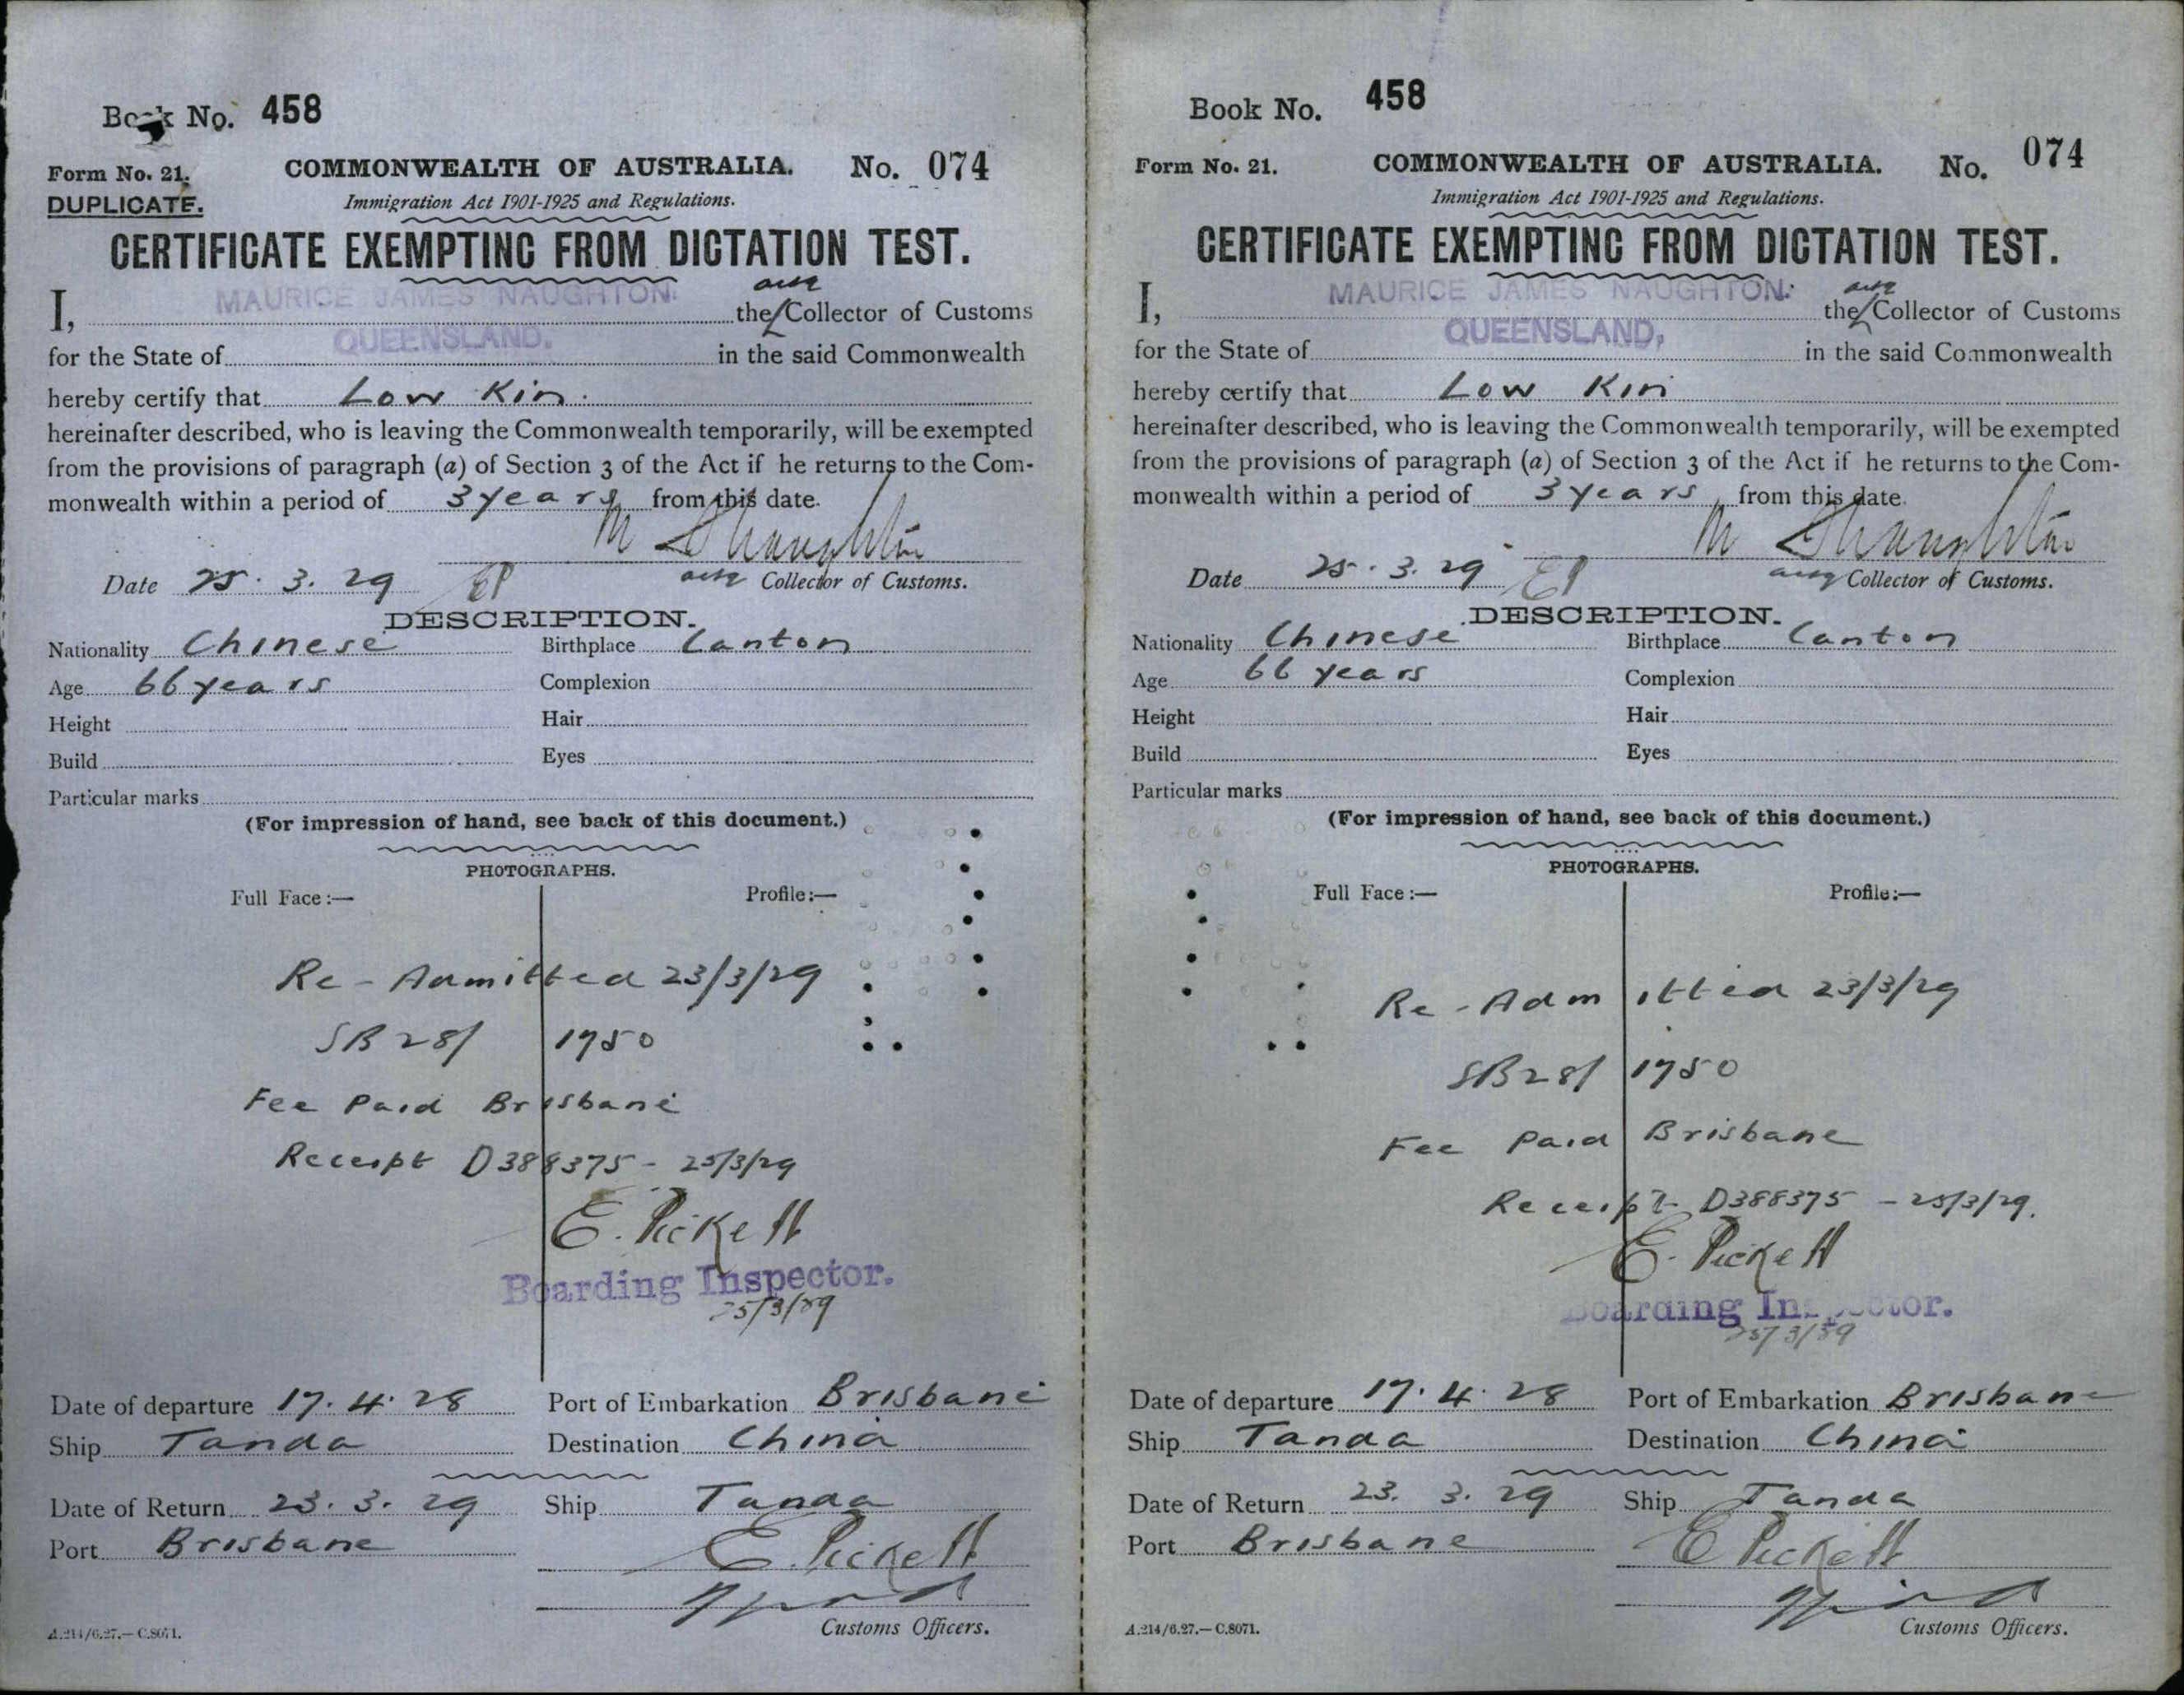 Book No. 458
Form No. 21. COMMONWEALTH OF AUSTRALIA. No. 074
DUPLICATE. Immigration Act 1901-1925 and Regulations.
CERTIFICATE EXEMPTING FROM DICTATION TEST.
actg
I, MAURICE JAMES NAUGHTON. the Collector of Customs
for the State of QUEENSLAND. in the said Commonwealth
hereby certify that Low Kin.
hereinafter described, who is leaving the Commonwealth temporarily, will be exempted
from the provisions of paragraph (a) of Section 3 of the Act if he returns to the Com-
monwealth within a period of 3 years from this date.
Date 25. 3. 29 EP actg Collector of Customs.
DESCRIPTION.
Nationality Chinese Birthplace Canton
Age 66 years Complexion
Height Hair
Build Eyes
Particular marks
(For impression of hand, see back of this document.)
PHOTOGRAPHS.
Full Face :— Profile :—
Re-Admitted 23/3/29
SB 28/1750
Fee Paid Brisbane
Receipt D388375 - 25/3/29
E. Pickett
Boarding Inspector.
25/3/29
Date of departure 17. 4. 28 Port of Embarkation Brisbane
Ship Tanda Destination China
Date of Return 23. 3. 29 Ship Tanda
Port Brisbane E. Pickett
Customs Officers.
A.214/6.27.—C.8071.
Book No. 458
Form No. 21. COMMONWEALTH OF AUSTRALIA. No. 074
Immigration Act 1901-1925 and Regulations.
CERTIFICATE EXEMPTING FROM DICTATION TEST.
actg
I, MAURICE JAMES NAUGHTON. the Collector of Customs
for the State of QUEENSLAND, in the said Commonwealth
hereby certify that Low Kin
hereinafter described, who is leaving the Commonwealth temporarily, will be exempted
from the provisions of paragraph (a) of Section 3 of the Act if he returns to the Com-
monwealth within a period of 3 years from this date.
Date 25. 3. 29 EP actg Collector of Customs.
DESCRIPTION.
Nationality Chinese Birthplace Canton
Age 66 years Complexion
Height Hair
Build Eyes
Particular marks
(For impression of hand, see back of this document.)
PHOTOGRAPHS.
Full Face :— Profile :—
Re-Admitted 23/3/29
SB 28/1750
Fee Paid Brisbane
Receipt D388375 - 25/3/29.
E. Pickett
Boarding Inspector.
25/3/29
Date of departure 17. 4. 28 Port of Embarkation Brisbane
Ship Tanda Destination China
Date of Return 23. 3. 29 Ship Tanda
Port Brisbane E Pickett
Customs Officers.
A.214/6.27.—C.8071.